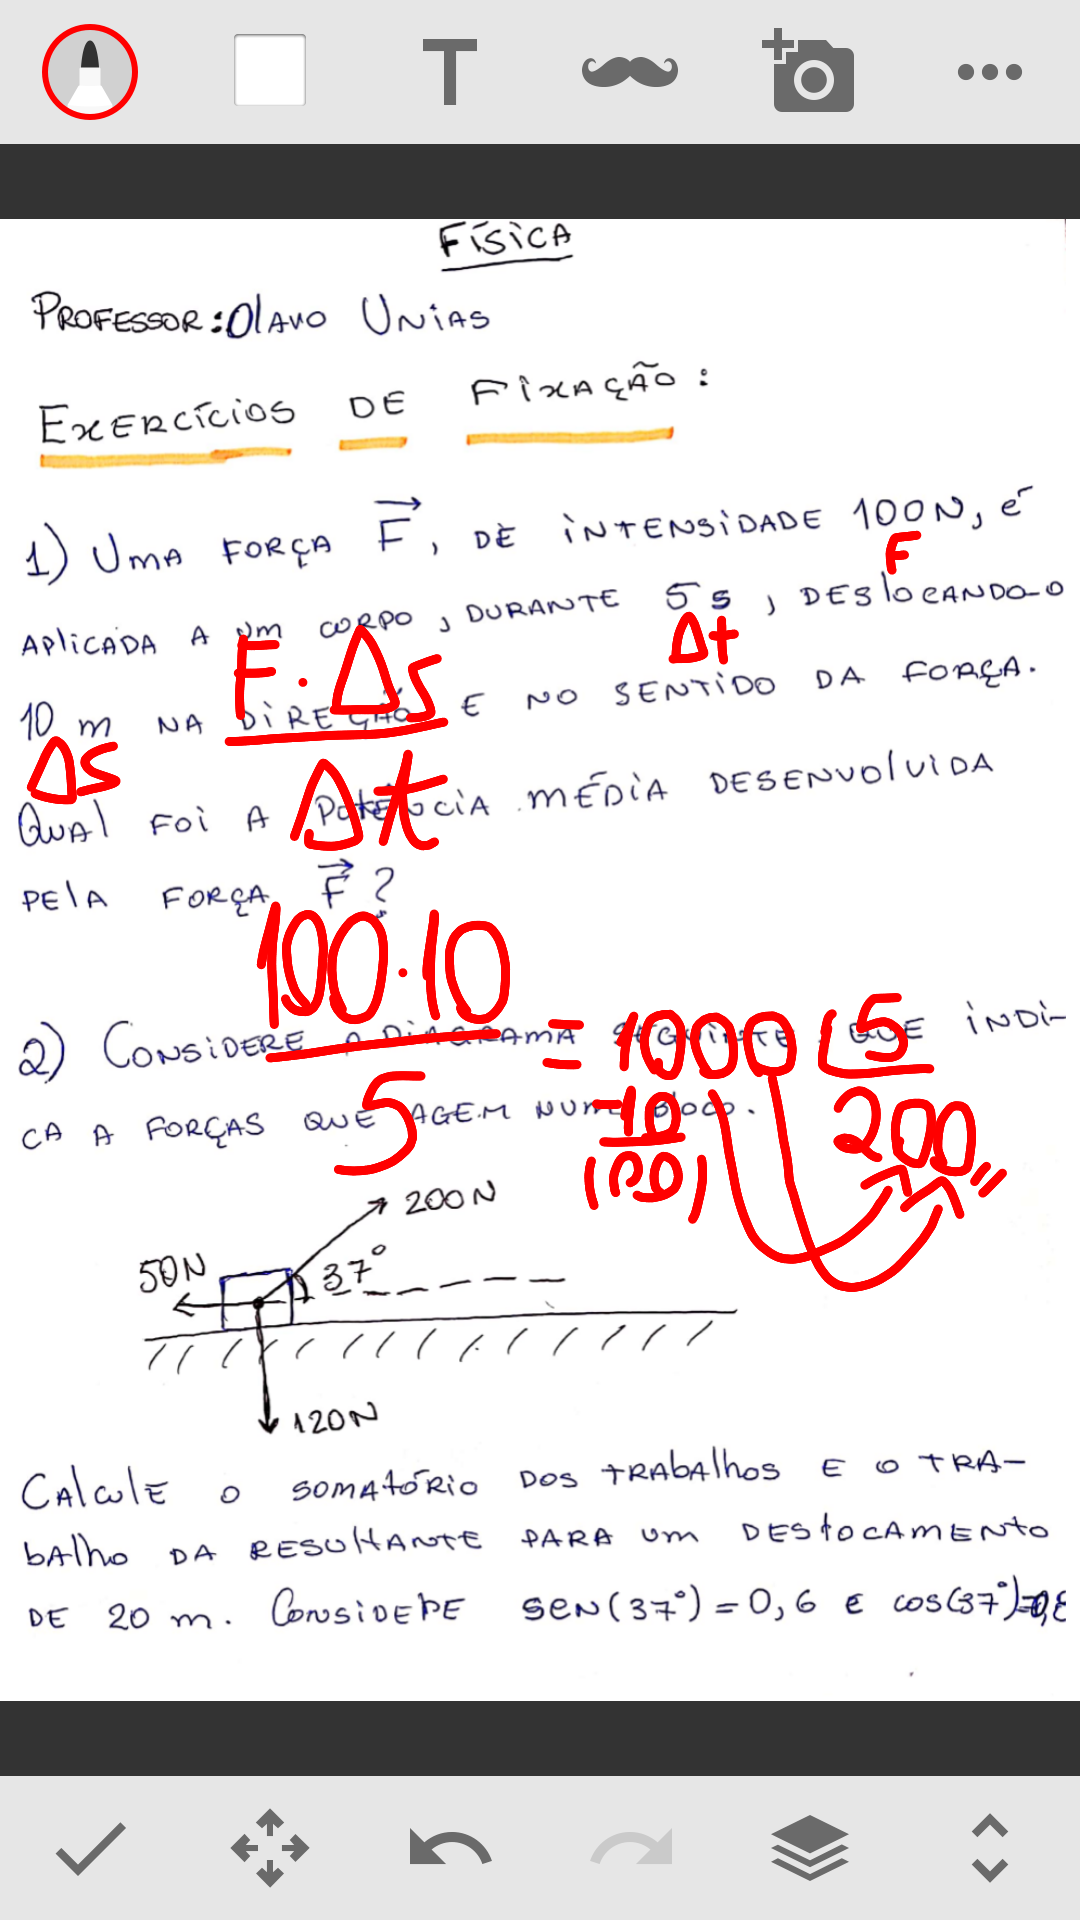 T
FÍSICA
PROFESSOR: OlAVO UNIAS
EXERCÍCIOS DE FIXAÇÃO:
1) UMA FORÇA F, DE INTENSIDADE 100N, é
F
APlICADA A UM CORPO, DURANTE 5s, DESlOCANDO-O
Δt
F·Δs
10 m NA DIREÇÃO E NO SENTIDO DA FORÇA.
Δs
Δt
QUAl FOI A POTÊNCIA MÉDIA DESENVOlVIDA
PElA FORÇA F?
100·10
= 1000 5
2) CONSIDERE O DIAGRAMA SEGUINTE, QUE INDI-
5
-10
200
CA A FORÇAS QUE AGEM NUM BlOCO.
(00)
200N
50N
37°
120N
CAlCUlE O SOMATÓRIO DOS TRAbAlhOS E O TRA-
bAlhO DA RESUlTANTE PARA UM DESlOCAMENTO
DE 20 m. CONSIDERE SEN(37°)=0,6 E COS(37°)=0,8